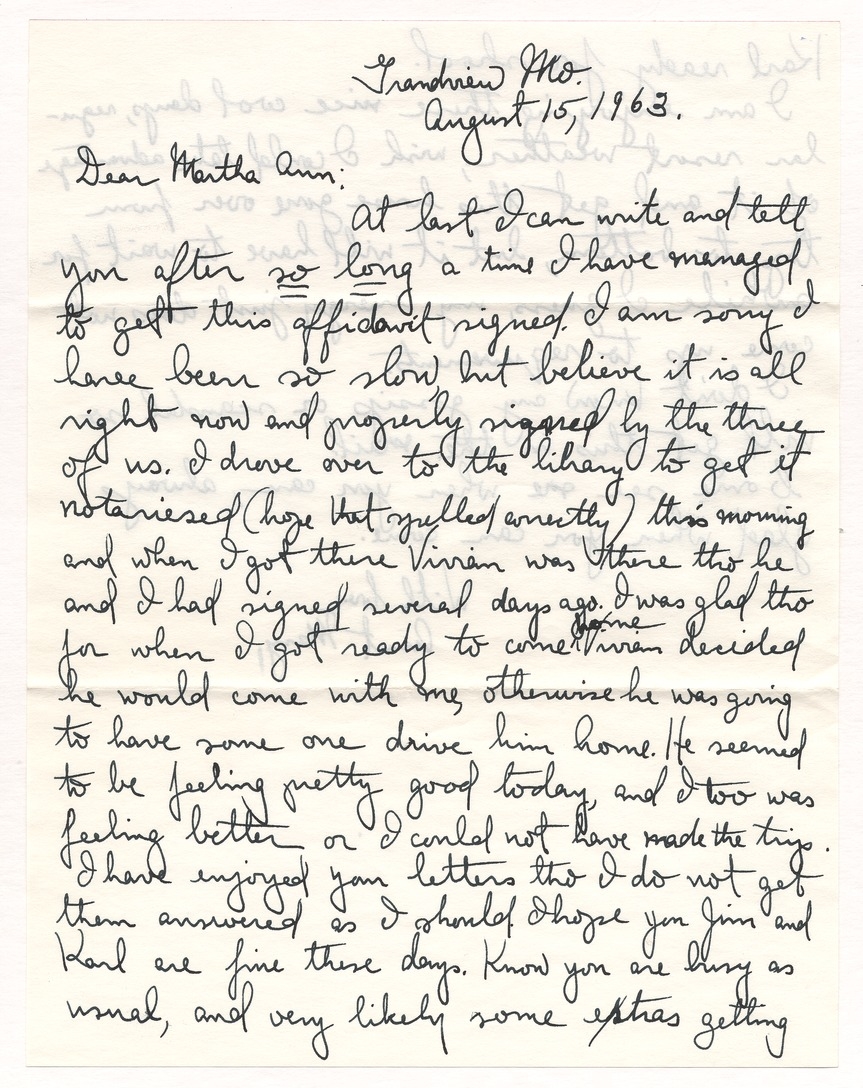 Grandview Mo.
August 15, 1963.
Dear Martha Ann:
At last I can write and tell
you after so long a time I have managed
to get this affidavit signed. I am sorry I
have been so slow, but believe it is all
right now and properly signed by the three
of us. I drove over to the library to get it
notariesed (hope that spelled correctly) this morning
and when I got there Vivian was there tho he
and I had signed several days ago. I was glad tho
home
for when I got ready to come Vivian decided
he would come with me, otherwise he was going
to have some one drive him home. He seemed
to be feeling pretty good today, and I too was
feeling better or I could not have made the trip.
I have enjoyed your letters tho I do not get
them answered as I should. I hope you Jim and
Karl are fine these days. Know you are busy as
usual, and very likely some extras getting